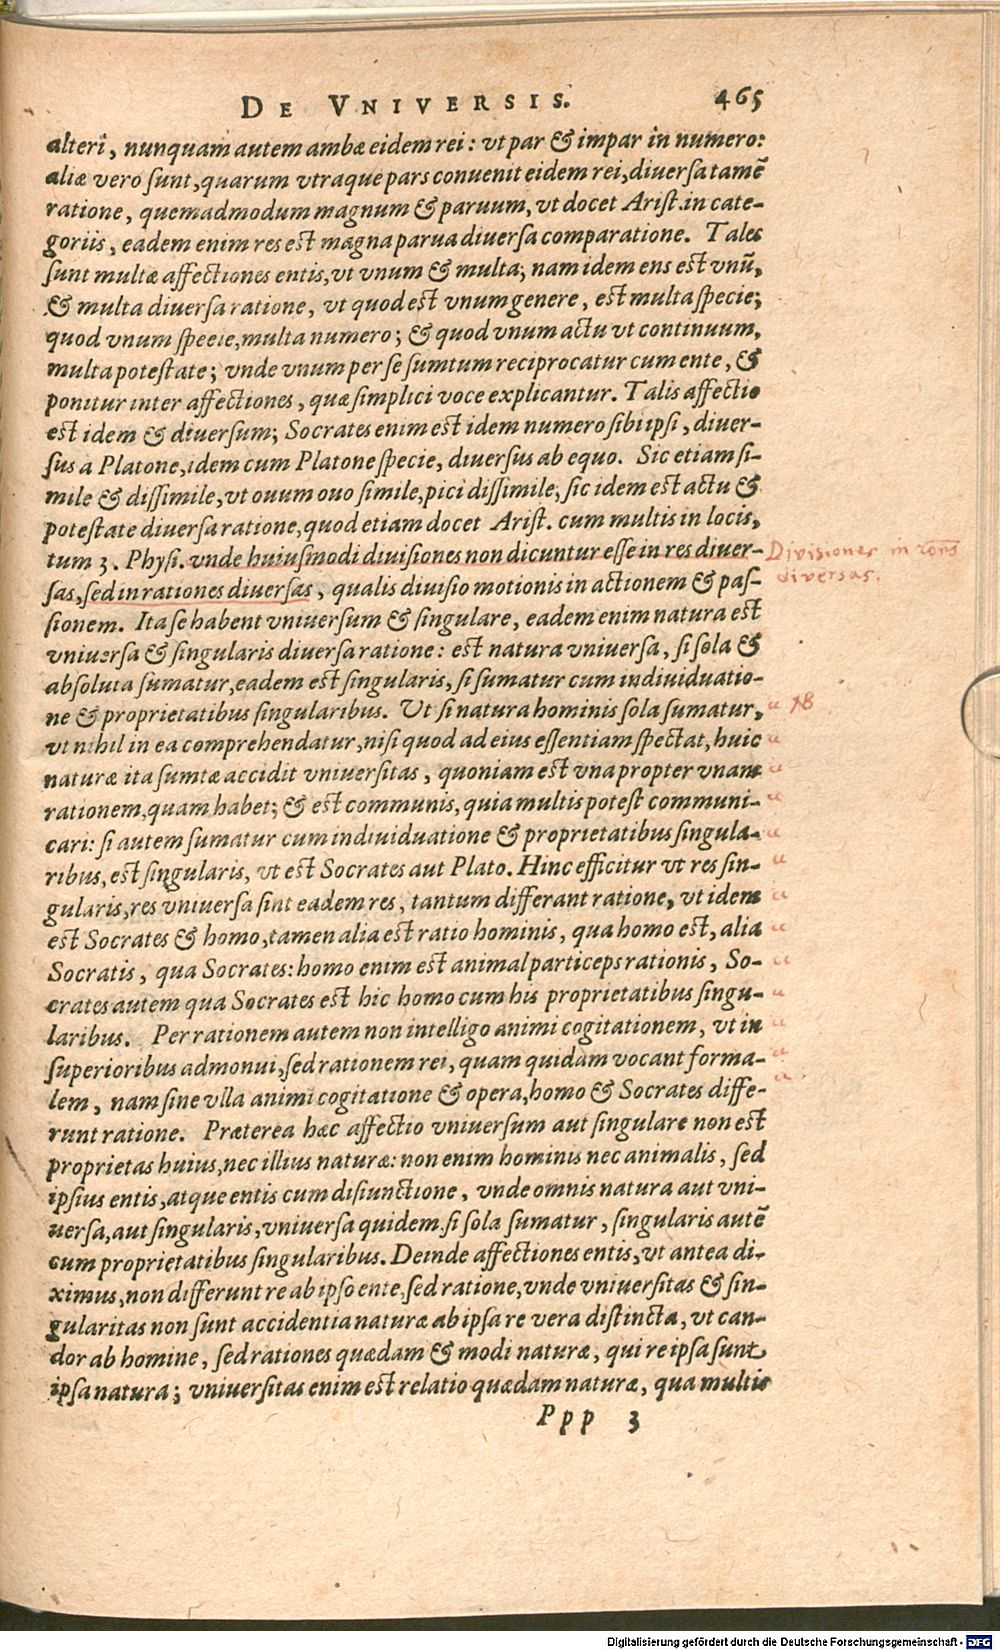 DE VNIVERSIS. 465
alteri, nunquam autem ambæ eidem rei: vt par & impar in numero:
aliæ vero sunt, quarum vtraque pars conuenit eidem rei, diuersa tamē
ratione, quemadmodum magnum & paruum, vt docet Arist. in cate-
goriis, eadem enim res est magna parua diuersa comparatione. Tales
sunt multæ affectiones entis, vt vnum & multa; nam idem ens est vnū,
& multa diuersa ratione, vt quod est vnum genere, est multa specie;
quod vnum specie, multa numero; & quod vnum actu vt continuum,
multa potestate; vnde vnum per se sumtum reciprocatur cum ente, &
ponitur inter affectiones, quæ simplici voce explicantur. Talis affectio
est idem & diuersum; Socrates enim est idem numero sibi ipsi, diuer-
sus a Platone, idem cum Platone specie, diuersus ab equo. Sic etiam si-
mile & dissimile, vt ouum ouo simile, pici dissimile; sic idem est actu &
potestate diuersa ratione, quod etiam docet Arist. cum multis in locis,
tum 3. Physi. vnde huiusmodi diuisiones non dicuntur esse in res diuer-
sas, sed in rationes diuersas, qualis diuisio motionis in actionem & pas-
sionem. Ita se habent vniuersum & singulare, eadem enim natura est
vniuersa & singularis diuersa ratione: est natura vniuersa, si sola &
absoluta sumatur, eadem est singularis, si sumatur cum indiuiduatio-
ne & proprietatibus singularibus. Ut si natura hominis sola sumatur,
vt nihil in ea comprehendatur, nisi quod ad eius essentiam spectat, huic
naturæ ita sumtæ accidit vniuersitas, quoniam est vna propter vnam
rationem, quam habet; & est communis, quia multis potest communi-
cari: si autem sumatur cum indiuiduatione & proprietatibus singula-
ribus, est singularis, vt est Socrates aut Plato. Hinc efficitur vt res sin-
gularis, res vniuersa sint eadem res, tantum differant ratione, vt idem
est Socrates & homo, tamen alia est ratio hominis, qua homo est, alia
Socratis, qua Socrates: homo enim est animal particeps rationis, So-
crates autem qua Socrates est hic homo cum his proprietatibus singu-
laribus. Per rationem autem non intelligo animi cogitationem, vt in
superioribus admonui, sed rationem rei, quam quidam vocant forma-
lem, nam sine vlla animi cogitatione & opera, homo & Socrates diffe-
runt ratione. Præterea hæc affectio vniuersum aut singulare non est
proprietas huius, nec illius naturæ: non enim hominis nec animalis, sed
ipsius entis, atque entis cum disiunctione, vnde omnis natura aut vni-
uersa, aut singularis, vniuersa quidem si sola sumatur, singularis autē
cum proprietatibus singularibus. Deinde affectiones entis, vt antea di-
ximus, non differunt re ab ipso ente, sed ratione, vnde vniuersitas & sin-
gularitas non sunt accidentia naturæ ab ipsa re vera distincta, vt can-
dor ab homine, sed rationes quædam & modi naturæ, qui re ipsa sunt
ipsa natura; vniuersitas enim est relatio quædam naturæ, qua multis
Ppp 3
Divisiones in
diversas.
18
Digitalisierung gefördert durch die Deutsche Forschungsgemeinschaft - DFG